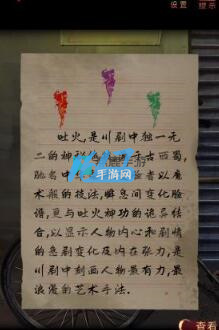 设置 提示
吐火,是川剧中独一无
二的神
手游网
脸名中 者以魔
术般的技法,瞬息间变化脸
谱,更与吐火神功的诡异结
合,以显示人物内心和剧情
的急剧变化及内在张力,是
川剧中刻画人物最有力,最
浪漫的艺术手法.
查看